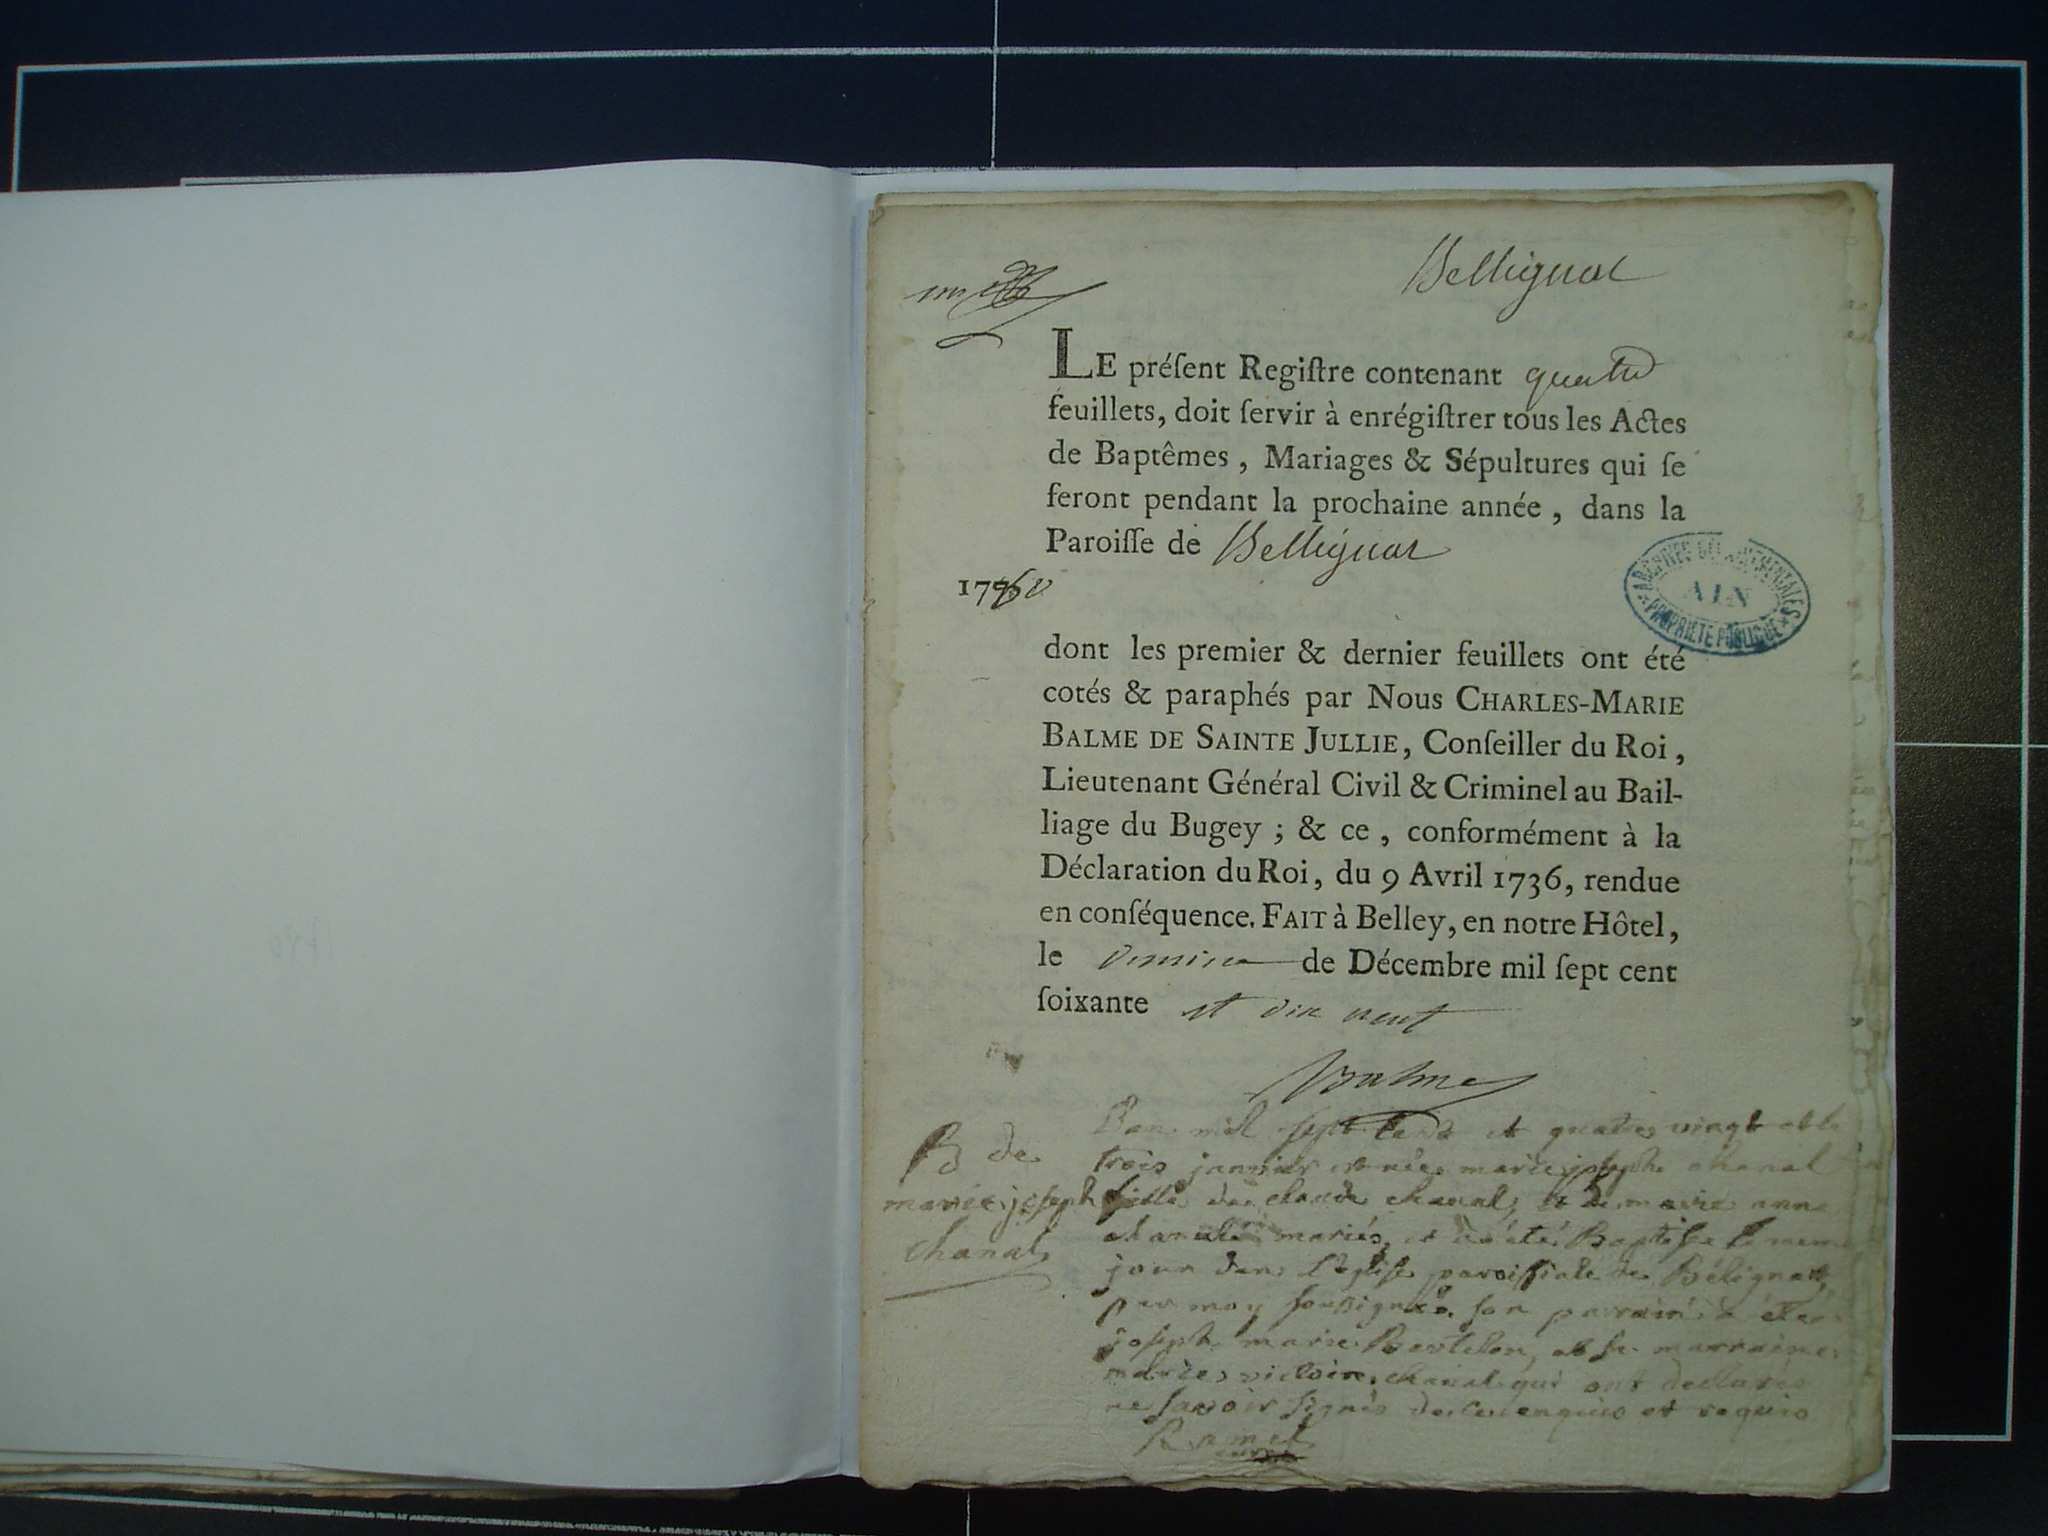 Bellignat
LE préſent Regiſtre contenant quatre
feuillets, doit ſervir à enrégiſtrer tous les Actes
de Baptêmes, Mariages & Sépultures qui ſe
feront pendant la prochaine année, dans la
Paroiſſe de Bellignat
dont les premier & dernier feuillets ont été
cotés & paraphés par Nous CHARLES-MARIE
BALME DE SAINTE JULLIE, Conſeiller du Roi,
Lieutenant Général Civil & Criminel au Bail-
liage du Bugey ; & ce, conformément à la
Déclaration du Roi, du 9 Avril 1736, rendue
en conſéquence. FAIT à Belley, en notre Hôtel,
le de Décembre mil ſept cent
ſoixante et dix neuf
Balme
ARCHIVES DÉPARTEMENTALES
AIN
PROPRIÉTÉ PUBLIQUE
B de
marie joseph
chanal
L'an mil sept cent et quatre vingt et le
trois janvier est née marie josephe chanal
fille de claude chanal, et de marie anne
mariés, et a été Baptisée le meme
jour dans l'eglise paroissiale de Bélignat,
par moy soussigné. son parrain a été
joseph marie Berthelon, et sa marraine
marie victoire chanal qui ont declarés
ne savoir signés de ce enquis et requis
Ramel
curé